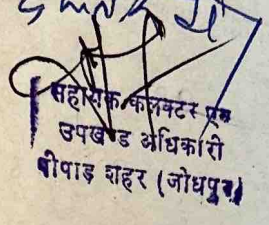 सहायक कलक्टर एवम
उपखण्ड अधिकारी
पीपाड़ शहर (जोधपुर)